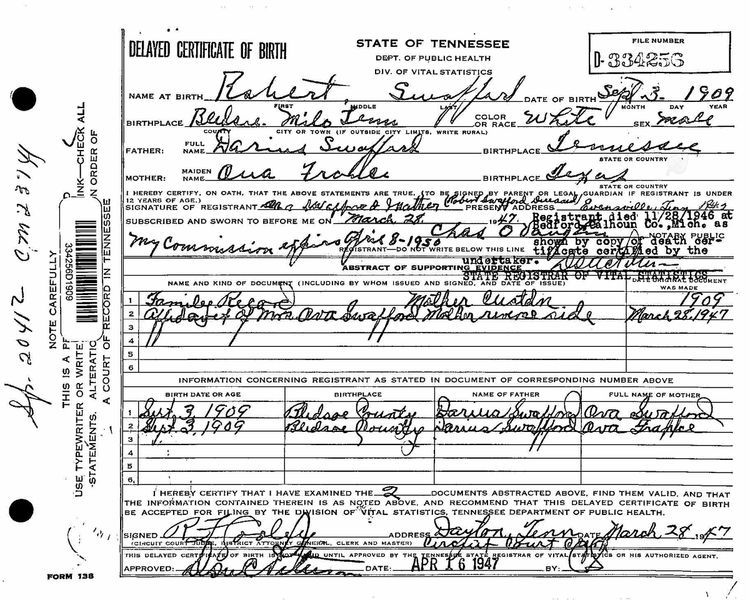 DELAYED CERTIFICATE OF BIRTH
STATE OF TENNESSEE
DEPT. OF PUBLIC HEALTH
DIV. OF VITAL STATISTICS
FILE NUMBER
D-334256
NAME AT BIRTH Robert Swafford DATE OF BIRTH Sept 3 1909
FIRST MIDDLE LAST MONTH DAY YEAR
BIRTHPLACE Bledsoe Milo Tenn COLOR OR RACE White SEX male
COUNTY CITY OR TOWN (IF OUTSIDE CITY LIMITS, WRITE RURAL)
FATHER: FULL NAME Darius Swafford BIRTHPLACE Tennessee
STATE OR COUNTRY
MOTHER: MAIDEN NAME Ova BIRTHPLACE Texas
STATE OR COUNTRY
I HEREBY CERTIFY, ON OATH, THAT THE ABOVE STATEMENTS ARE TRUE. (TO BE SIGNED BY PARENT OR LEGAL GUARDIAN IF REGISTRANT IS UNDER 12 YEARS OF AGE.)
(Robert Swafford
SIGNATURE OF REGISTRANT Swafford Mother PRESENT ADDRESS Evensville, Tenn
SUBSCRIBED AND SWORN TO BEFORE ME ON March 28 1947. Registrant died 11/28/1946 at
Bedford, Calhoun Co., Mich. as
Chas O NOTARY PUBLIC
My Commission expires April 8-1950 shown by copy of death cer-
REGISTRANT—DO NOT WRITE BELOW THIS LINE tificate certified by the
undertaker.
ABSTRACT OF SUPPORTING EVIDENCE STATE REGISTRAR OF VITAL STATISTICS
NAME AND KIND OF DOCUMENT (INCLUDING BY WHOM ISSUED AND SIGNED, AND DATE OF ISSUE) DATE ORIGINAL DOCUMENT WAS MADE
1 Family Record Mother Custdn 1909
2 Affidavit of Mrs Ova Swafford Mother reverse side March 28, 1947
3
4
5
6
INFORMATION CONCERNING REGISTRANT AS STATED IN DOCUMENT OF CORRESPONDING NUMBER ABOVE
BIRTH DATE OR AGE BIRTHPLACE NAME OF FATHER FULL NAME OF MOTHER
1 Sept. 3, 1909 Bledsoe County Darius Swafford Ova Swafford
2 Sept. 3, 1909 Bledsoe County Darius Swafford Ova
3
4
5
6.
I HEREBY CERTIFY THAT I HAVE EXAMINED THE 2 DOCUMENTS ABSTRACTED ABOVE, FIND THEM VALID, AND THAT
THE INFORMATION CONTAINED THEREIN IS AS NOTED ABOVE, AND RECOMMEND THAT THIS DELAYED CERTIFICATE OF BIRTH
BE ACCEPTED FOR FILING BY THE DIVISION OF VITAL STATISTICS, TENNESSEE DEPARTMENT OF PUBLIC HEALTH.
SIGNED ADDRESS Dayton, Tenn DATE March 28 1947
(CIRCUIT COURT JUDGE, DISTRICT ATTORNEY GENERAL, CLERK AND MASTER) Circuit Court Clerk
THIS DELAYED CERTIFICATE OF BIRTH IS UNTIL APPROVED BY THE TENNESSEE STATE REGISTRAR OF VITAL STATISTICS OR HIS AUTHORIZED AGENT.
APPROVED: DATE: APR 16 1947 BY:
FORM 138
Sp. 20412 CM 2374
NOTE CAREFULLY
33425601909
THIS IS A
USE TYPEWRITER OR WRITE
INK—CHECK ALL
STATEMENTS. ALTERATIC
N ORDER OF
A COURT OF RECORD IN TENNESSEE